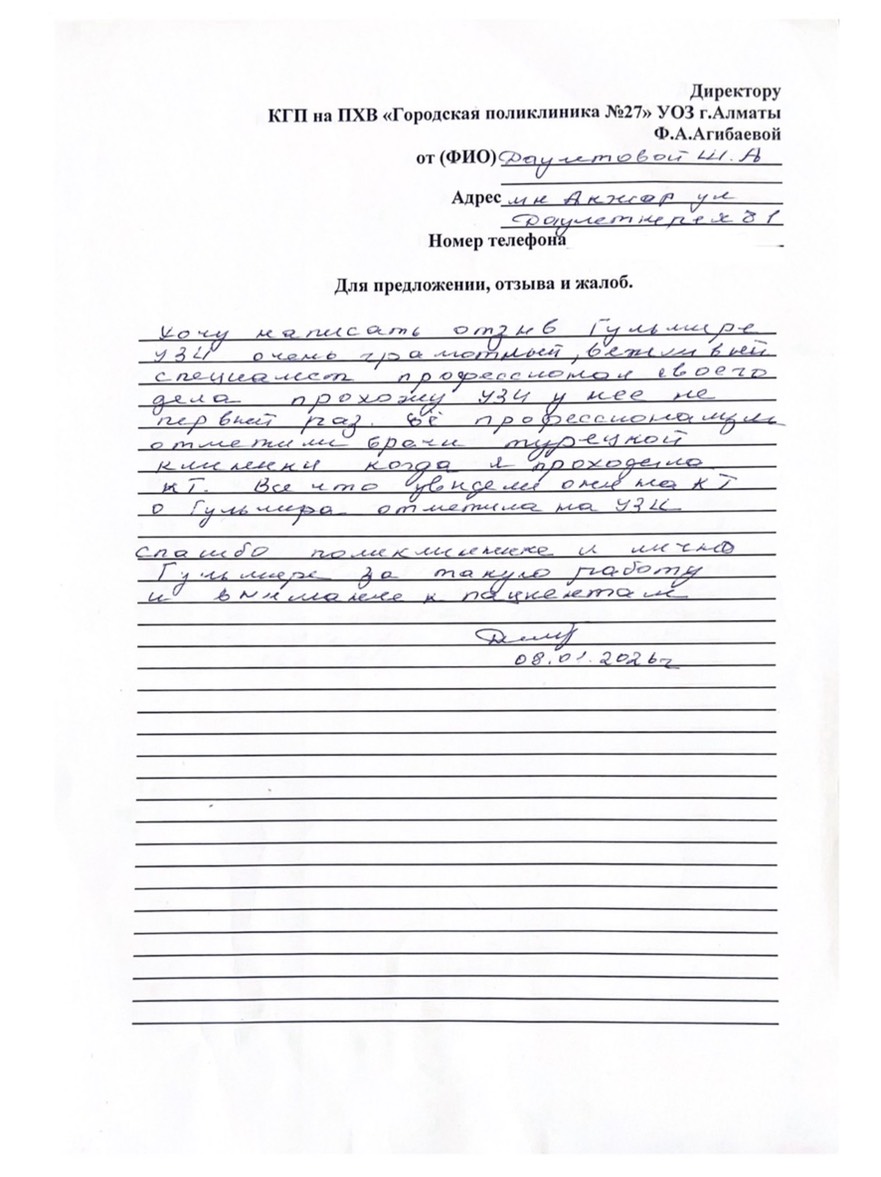 Директору
КГП на ПХВ «Городская поликлиника №27» УОЗ г.Алматы
Ф.А.Агибаевой
от (ФИО) Даулетовой Ш.А
Адрес мн Акжар ул
81
Номер телефона
Для предложении, отзыва и жалоб.
Хочу написать отзыв Гульмире
УЗИ очень грамотный, вежливый
специалист профессионал своего
дела прохожу УЗИ у нее не
первый раз. Её профессионализм
отметили врачи турецкой
клиники когда я проходила
КТ. Все что увидели они на КТ
Гульмира отметила на УЗИ
спасибо поликлинике и лично
Гульмире за такую работу
и внимание к пациентам
08.01.2026г